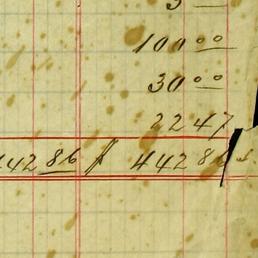 100 00
30 00
22 47
442 86 $ 442 86